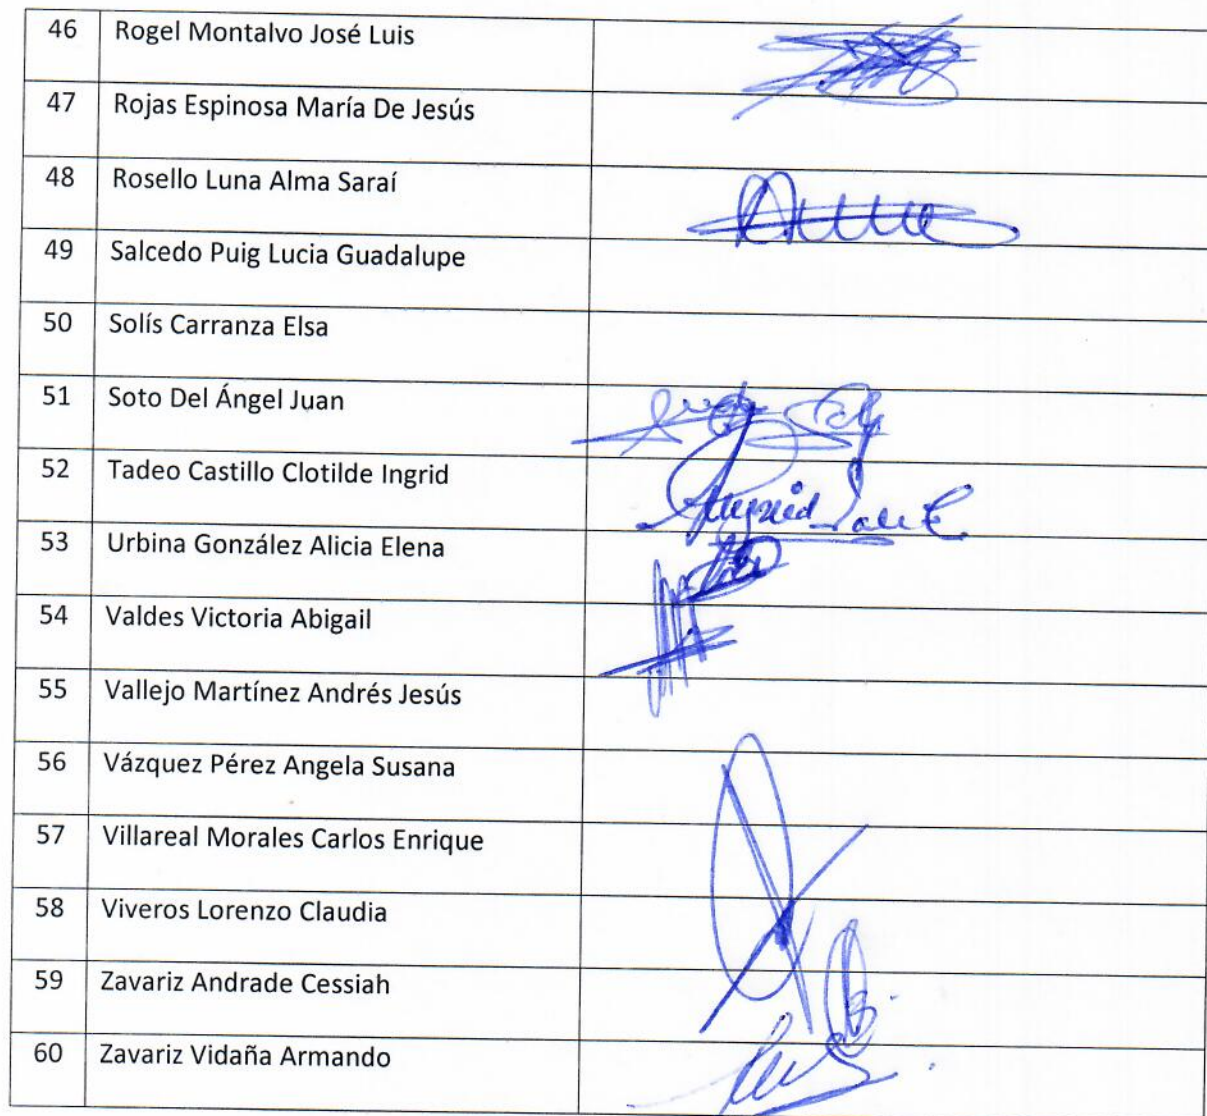 46 Rogel Montalvo José Luis
47 Rojas Espinosa María De Jesús
48 Rosello Luna Alma Saraí
49 Salcedo Puig Lucia Guadalupe
50 Solís Carranza Elsa
51 Soto Del Ángel Juan
52 Tadeo Castillo Clotilde Ingrid
53 Urbina González Alicia Elena
54 Valdes Victoria Abigail
55 Vallejo Martínez Andrés Jesús
56 Vázquez Pérez Angela Susana
57 Villareal Morales Carlos Enrique
58 Viveros Lorenzo Claudia
59 Zavariz Andrade Cessiah
60 Zavariz Vidaña Armando